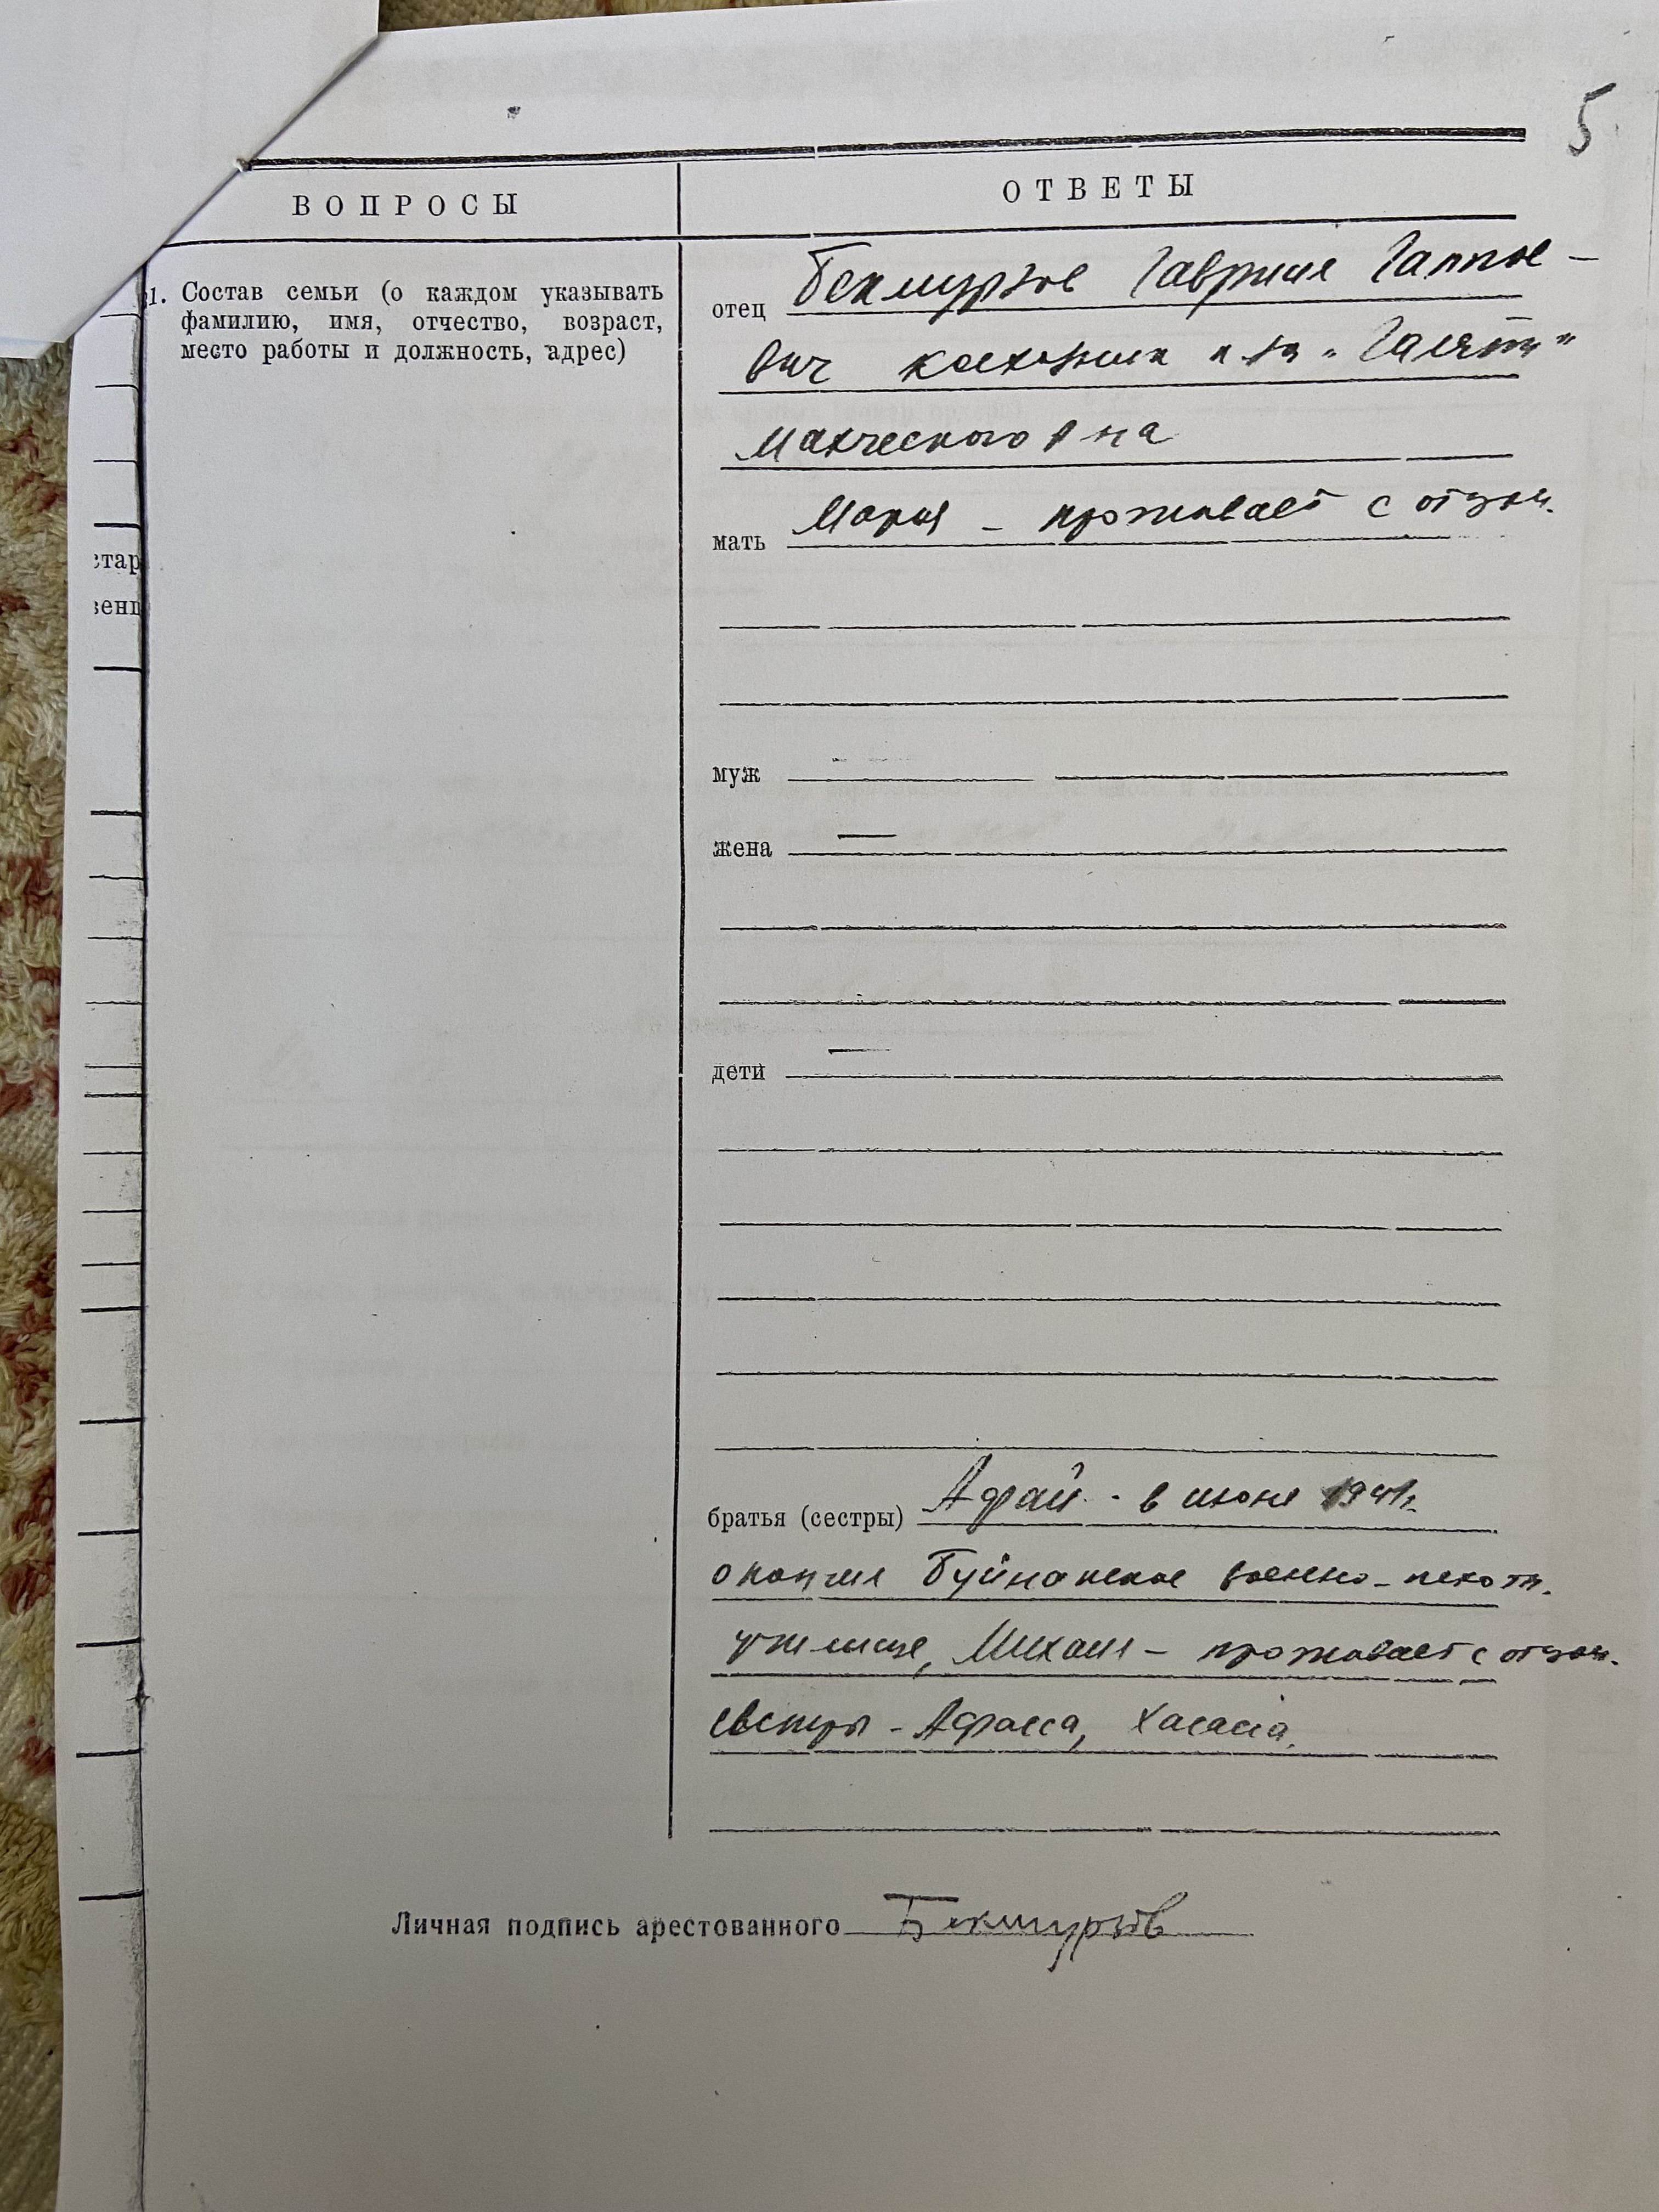 5
ВОПРОСЫ
ОТВЕТЫ
1. Состав семьи (о каждом указывать
фамилию, имя, отчество, возраст,
место работы и должность, адрес)
отец Бекмурзов Гаврил Гаппое-
вич колхозник к-за „Галяти"
Махческого р-на
мать Мария - проживает с отцом.
стар
венц
муж
жена —
дети —
братья (сестры) Афай - в июне 1941 г.
окончил Буйнакское военно-пехотн.
училище, Михаил - проживает с отцом.
сестры -
Личная подпись арестованного Бекмурзов